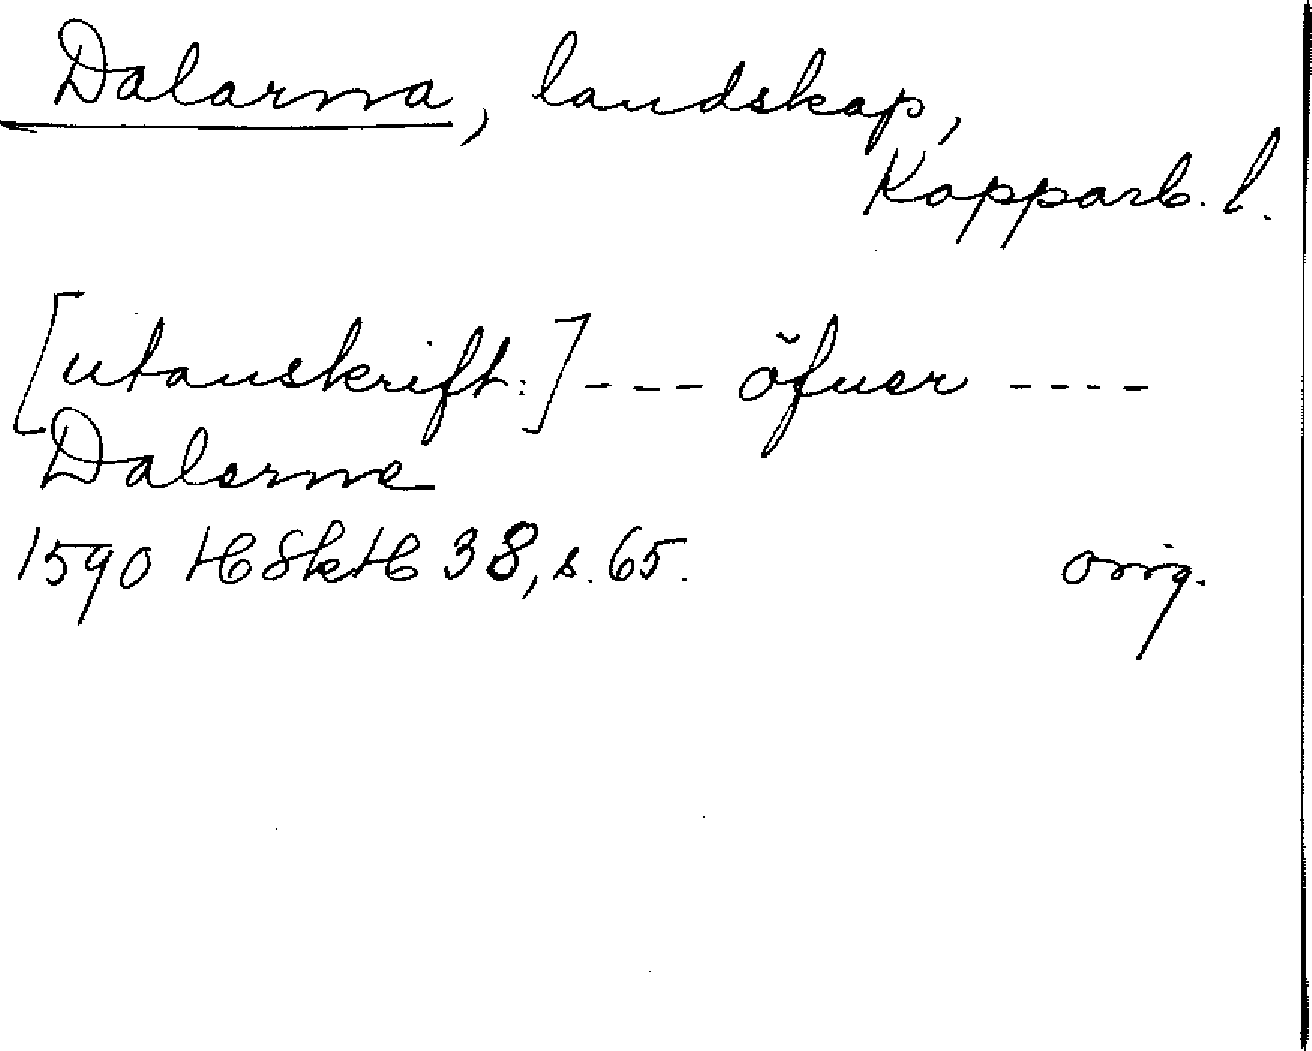 Dalarna, landskap,
Kopparb. l.
[utanskrift:] --- öfuer ----
Dalarne
1590 HSkH 38, s. 65. orig.